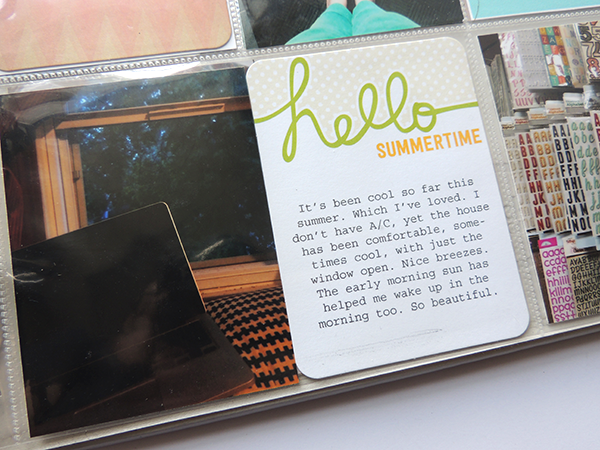 hello
SUMMERTIME
It's been cool so far this
summer. Which I've loved. I
don't have A/C, yet the house
has been comfortable, some-
times cool, with just the
window open. Nice breezes.
The early morning sun has
helped me wake up in the
morning too. So beautiful.